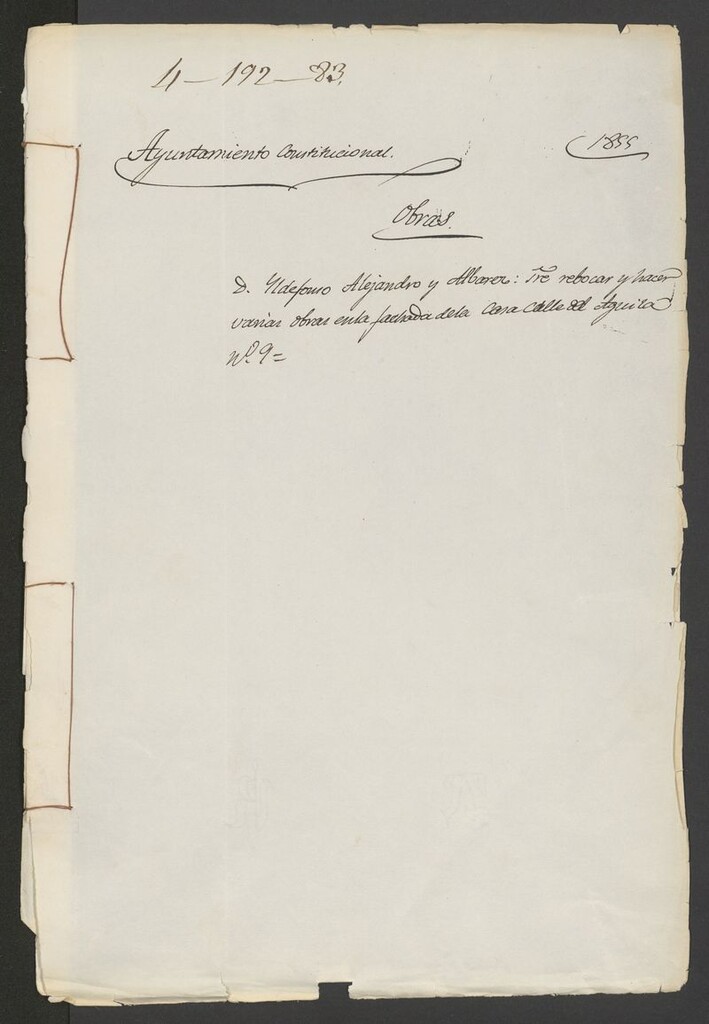 4-192-83,
Ayuntamiento Constitucional.
1855
Obras.
D. Yldefonso Alejandro y Albarez: Tre rebocar y hacer
varias obras en la fachada de la Casa Calle del Aguila
Nº. 9=